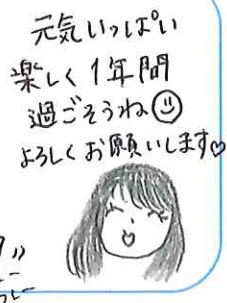 元気いっぱい
楽しく1年間
過ごそうね☺
よろしくお願いします♡